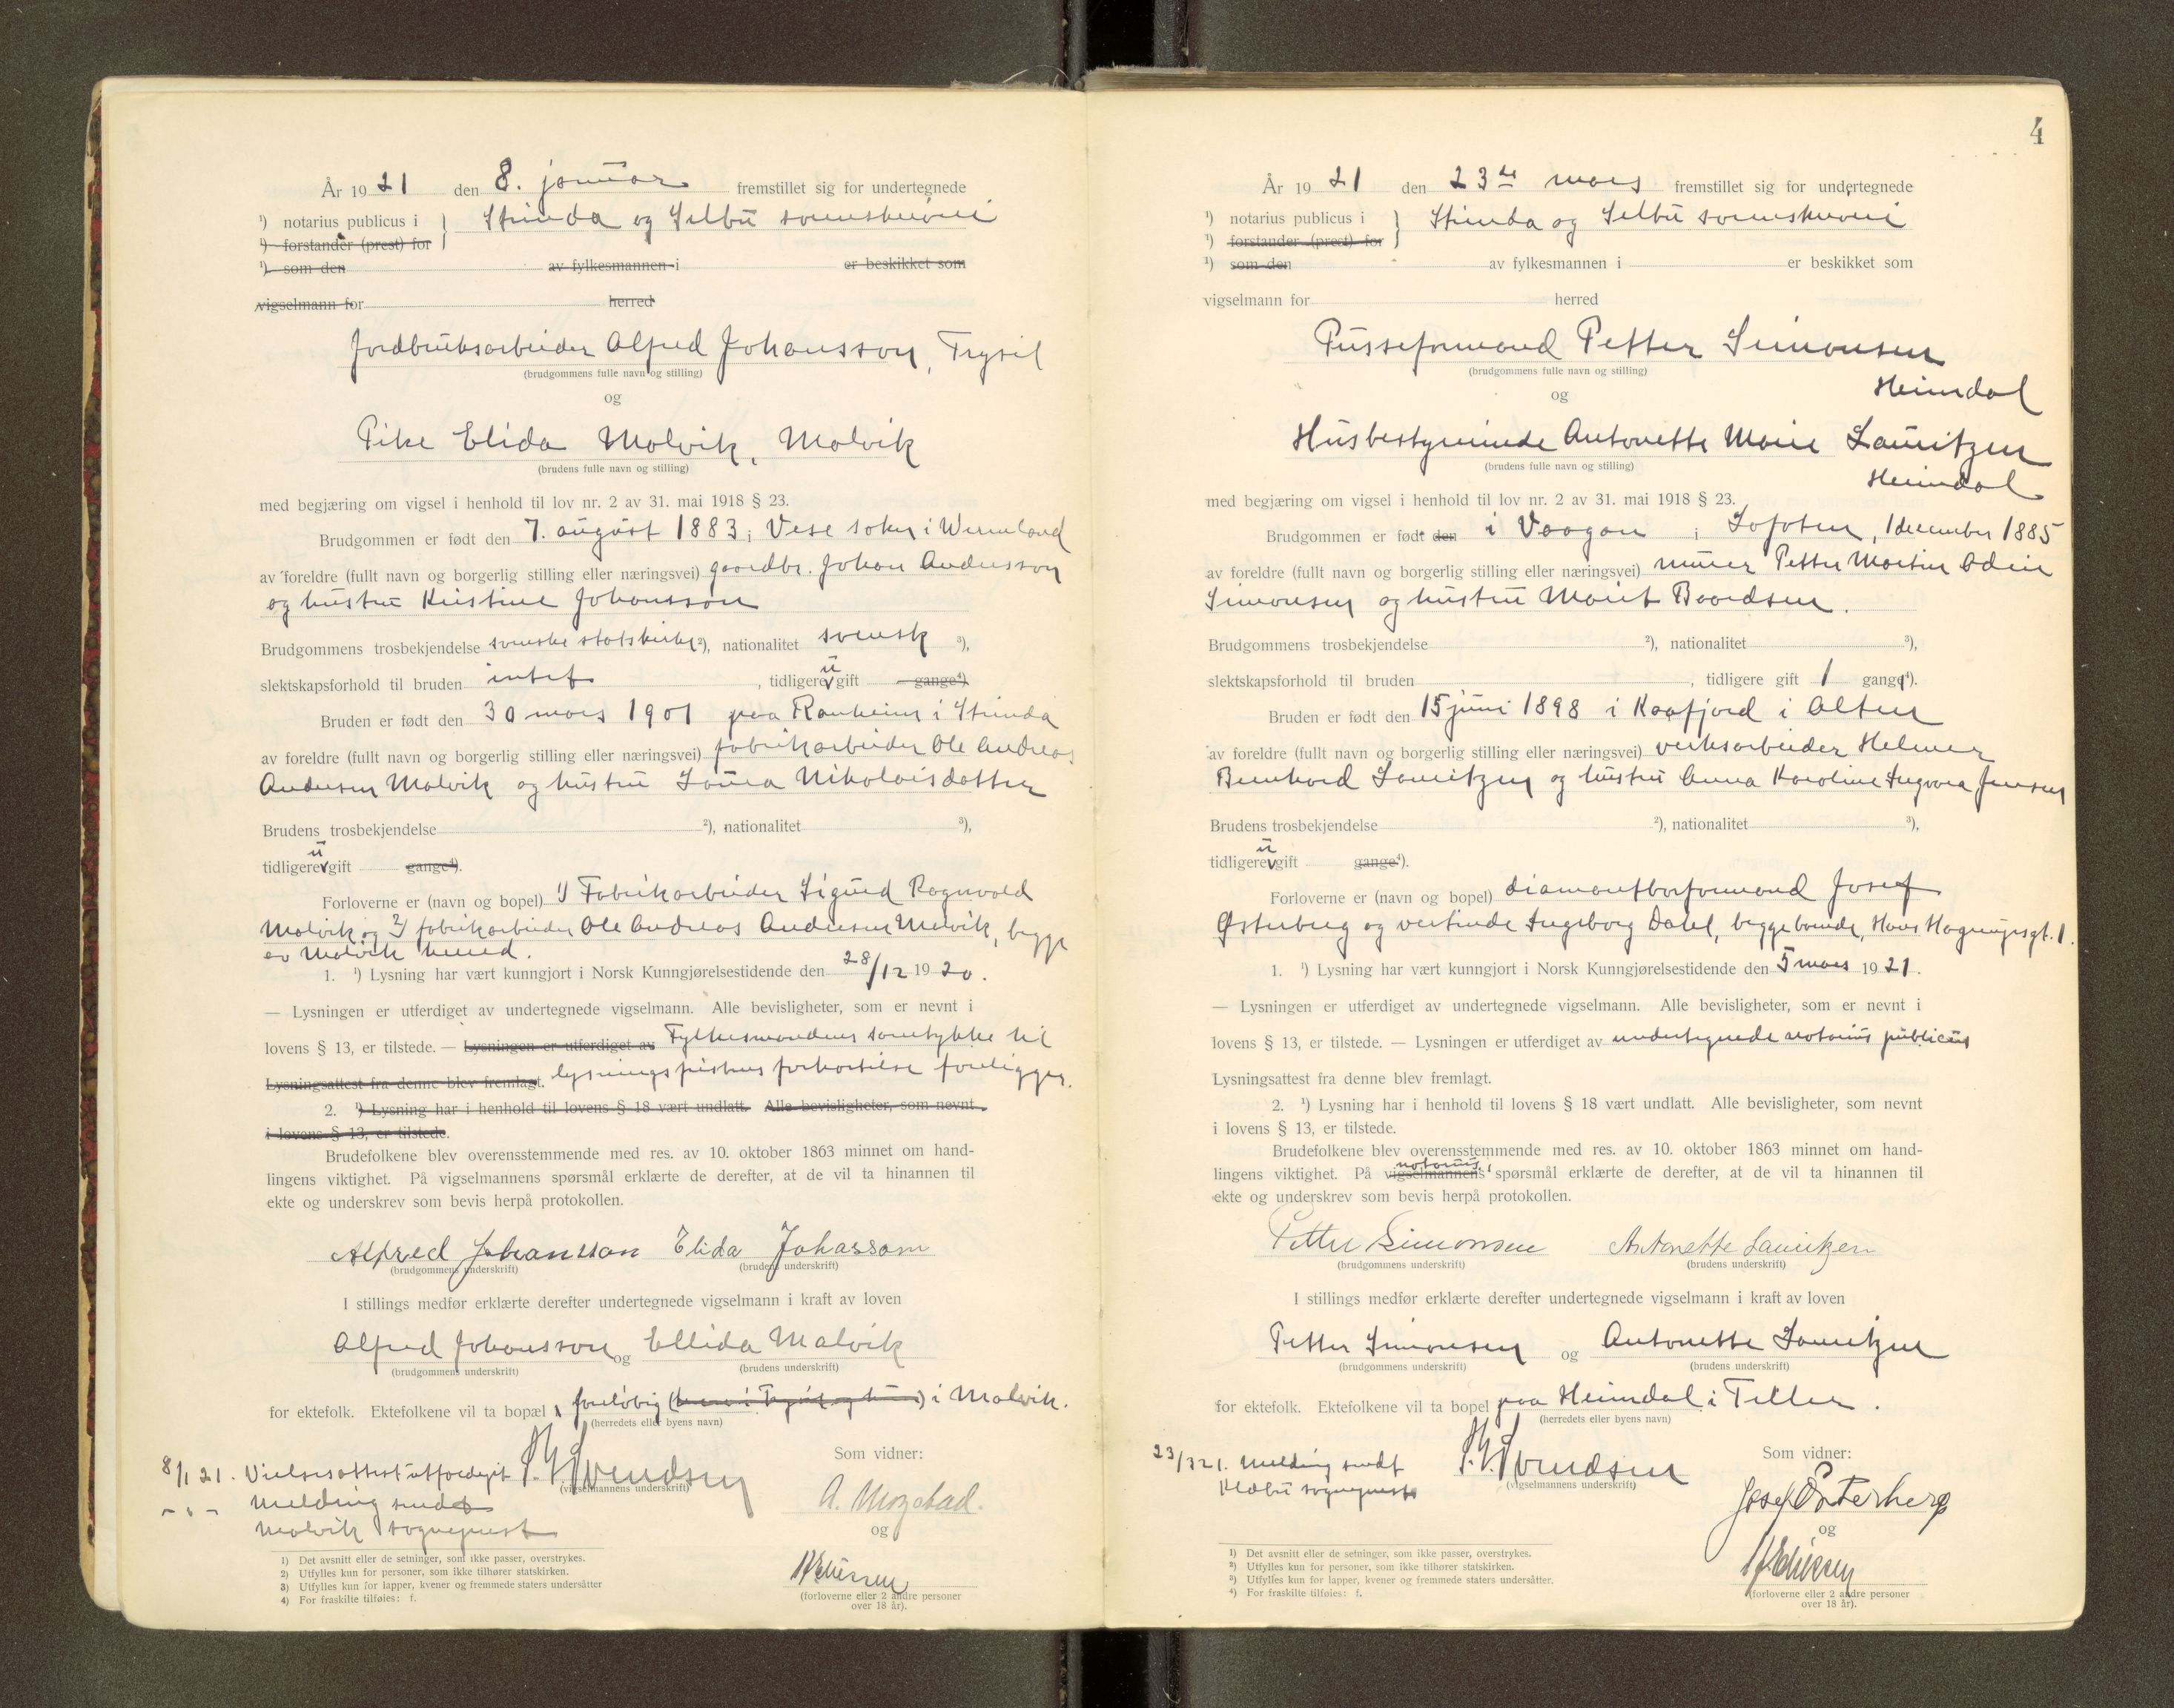 År 1921 den 8. januar fremstillet sig for undertegnede
¹) notarius publicus i } Strinda og Selbu sorenskriveri
¹) forstander (prest) for
¹) som den av fylkesmannen i er beskikket som
vigselmann for herred
Jordbruksarbeider Alfred Johansson, Trysil
(brudgommens fulle navn og stilling)
og
Pike Elida Malvik, Malvik
(brudens fulle navn og stilling)
med begjæring om vigsel i henhold til lov nr. 2 av 31. mai 1918 § 23.
Brudgommen er født den 7. august 1883 i Vese soken i Wermland
av foreldre (fullt navn og borgerlig stilling eller næringsvei) gaardbr. Johan Andersson
og hustru Kristine Johansson
Brudgommens trosbekjendelse svenske statskirke ²), nationalitet svensk ³),
slektskapsforhold til bruden intet, tidligere u gift gange⁴).
Bruden er født den 30 mars 1901 paa Ranheim i Strinda
av foreldre (fullt navn og borgerlig stilling eller næringsvei) fabrikarbeider Ole Andreas
Andersen Malvik og hustru Laura Nikolaisdatter
Brudens trosbekjendelse ²), nationalitet ³),
tidligere u gift gange⁴).
Forloverne er (navn og bopel) 1) Fabrikarbeider Sigurd Ragnvald
Malvik og 2) fabrikarbeider Ole Andreas Andersen Malvik, begge
av Malvik herred.
1. ¹) Lysning har vært kunngjort i Norsk Kunngjørelsestidende den 28/12 1920.
— Lysningen er utferdiget av undertegnede vigselmann. Alle bevisligheter, som er nevnt i
lovens § 13, er tilstede. — Lysningen er utferdiget av Fylkesmandens samtykke til
Lysningsattest fra denne blev fremlagt. lysningsfristens forkortelse foreligger.
2. ¹) Lysning har i henhold til lovens § 18 vært undlatt. Alle bevisligheter, som nevnt
i lovens § 13, er tilstede.
Brudefolkene blev overensstemmende med res. av 10. oktober 1863 minnet om hand-
lingens viktighet. På vigselmannens spørsmål erklærte de derefter, at de vil ta hinannen til
ekte og underskrev som bevis herpå protokollen.
Alfred Johansson Elida Johassom
(brudgommens underskrift) (brudens underskrift)
I stillings medfør erklærte derefter undertegnede vigselmann i kraft av loven
Alfred Johansson og Ellida Malvik
(brudgommens underskrift) (brudens underskrift)
for ektefolk. Ektefolkene vil ta bopæl foreløbig i Malvik.
(herredets eller byens navn)
8/1 21. Vielsesattest utfærdiget
(vigselmannens underskrift)
Som vidner:
— " — Melding sendt
Malvik sogneprest
A. Mogstad.
og
(forloverne eller 2 andre personer
over 18 år).
1) Det avsnitt eller de setninger, som ikke passer, overstrykes.
2) Utfylles kun for personer, som ikke tilhører statskirken.
3) Utfylles kun for lapper, kvener og fremmede staters undersåtter
4) For fraskilte tilføies: f.
4
År 1921 den 23de mars fremstillet sig for undertegnede
¹) notarius publicus i } Strinda og Selbu sorenskriveri
¹) forstander (prest) for
¹) som den av fylkesmannen i er beskikket som
vigselmann for herred
Pusseformand Petter Simonsen
(brudgommens fulle navn og stilling)
Heimdal
og
Husbestyrerinde Antonette Marie Lauritzen
(brudens fulle navn og stilling)
Heimdal
med begjæring om vigsel i henhold til lov nr. 2 av 31. mai 1918 § 23.
Brudgommen er født den i Vaagan i Lofoten, 1 december 1885
av foreldre (fullt navn og borgerlig stilling eller næringsvei) murer Petter Martin Odin
Simonsen og hustru Marit Baardsen.
Brudgommens trosbekjendelse ²), nationalitet ³),
slektskapsforhold til bruden , tidligere gift 1 gang⁴).
Bruden er født den 15 juni 1898 i Kaafjord i Alten
av foreldre (fullt navn og borgerlig stilling eller næringsvei) verksarbeider Helmer
Bernhard Lauritzen og hustru Anna Karoline Ingvora Jensen
Brudens trosbekjendelse ²), nationalitet ³),
tidligere u gift gange⁴).
Forloverne er (navn og bopel) diamantborformand Josef
Østerberg og vertinde Ingeborg Dahl, begge boende, Hans Hagerupsgt. 1.
1. ¹) Lysning har vært kunngjort i Norsk Kunngjørelsestidende den 5 mars 1921.
— Lysningen er utferdiget av undertegnede vigselmann. Alle bevisligheter, som er nevnt i
lovens § 13, er tilstede. — Lysningen er utferdiget av undertegnede notarius publicus
Lysningsattest fra denne blev fremlagt.
2. ¹) Lysning har i henhold til lovens § 18 vært undlatt. Alle bevisligheter, som nevnt
i lovens § 13, er tilstede.
Brudefolkene blev overensstemmende med res. av 10. oktober 1863 minnet om hand-
lingens viktighet. På vigselmannens notarius' spørsmål erklærte de derefter, at de vil ta hinannen til
ekte og underskrev som bevis herpå protokollen.
Petter Simonsen Antonette Lauritzen
(brudgommens underskrift) (brudens underskrift)
I stillings medfør erklærte derefter undertegnede vigselmann i kraft av loven
Petter Simonsen og Antonette Lauritzen
(brudgommens underskrift) (brudens underskrift)
for ektefolk. Ektefolkene vil ta bopel paa Heimdal i Tiller.
(herredets eller byens navn)
23/3 21. Melding sendt
Klæbu sogneprest
(vigselmannens underskrift)
Som vidner:
Josef Österberg
og
(forloverne eller 2 andre personer
over 18 år).
1) Det avsnitt eller de setninger, som ikke passer, overstrykes.
2) Utfylles kun for personer, som ikke tilhører statskirken.
3) Utfylles kun for lapper, kvener og fremmede staters undersåtter.
4) For fraskilte tilføies: f.